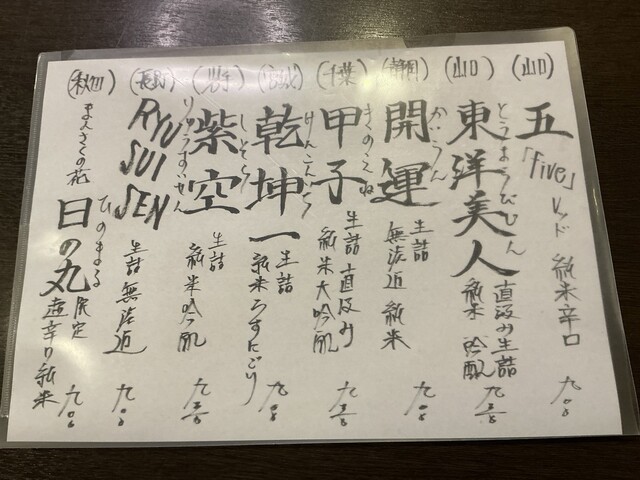 (山口)
五
「five」
レッド 純米辛口
九〇〇
(山口)
東洋美人
とうようびじん
直汲み生詰
純米吟醸
(静岡)
開運
かいうん
生詰
無濾過 純米
九〇〇
(千葉)
甲子
きのえね
生詰 直汲み
純米大吟醸
(宮城)
乾坤一
けんこんいち
生詰
純米うすにごり
九〇〇
(岩手)
紫空
しそら
生詰
純米吟醸
(長野)
RYU
SUI
SEN
りゅうすいせん
生詰 無濾過
九〇〇
(秋田)
まんさくの花
日の丸
ひのまる
限定
超辛口純米
九〇〇